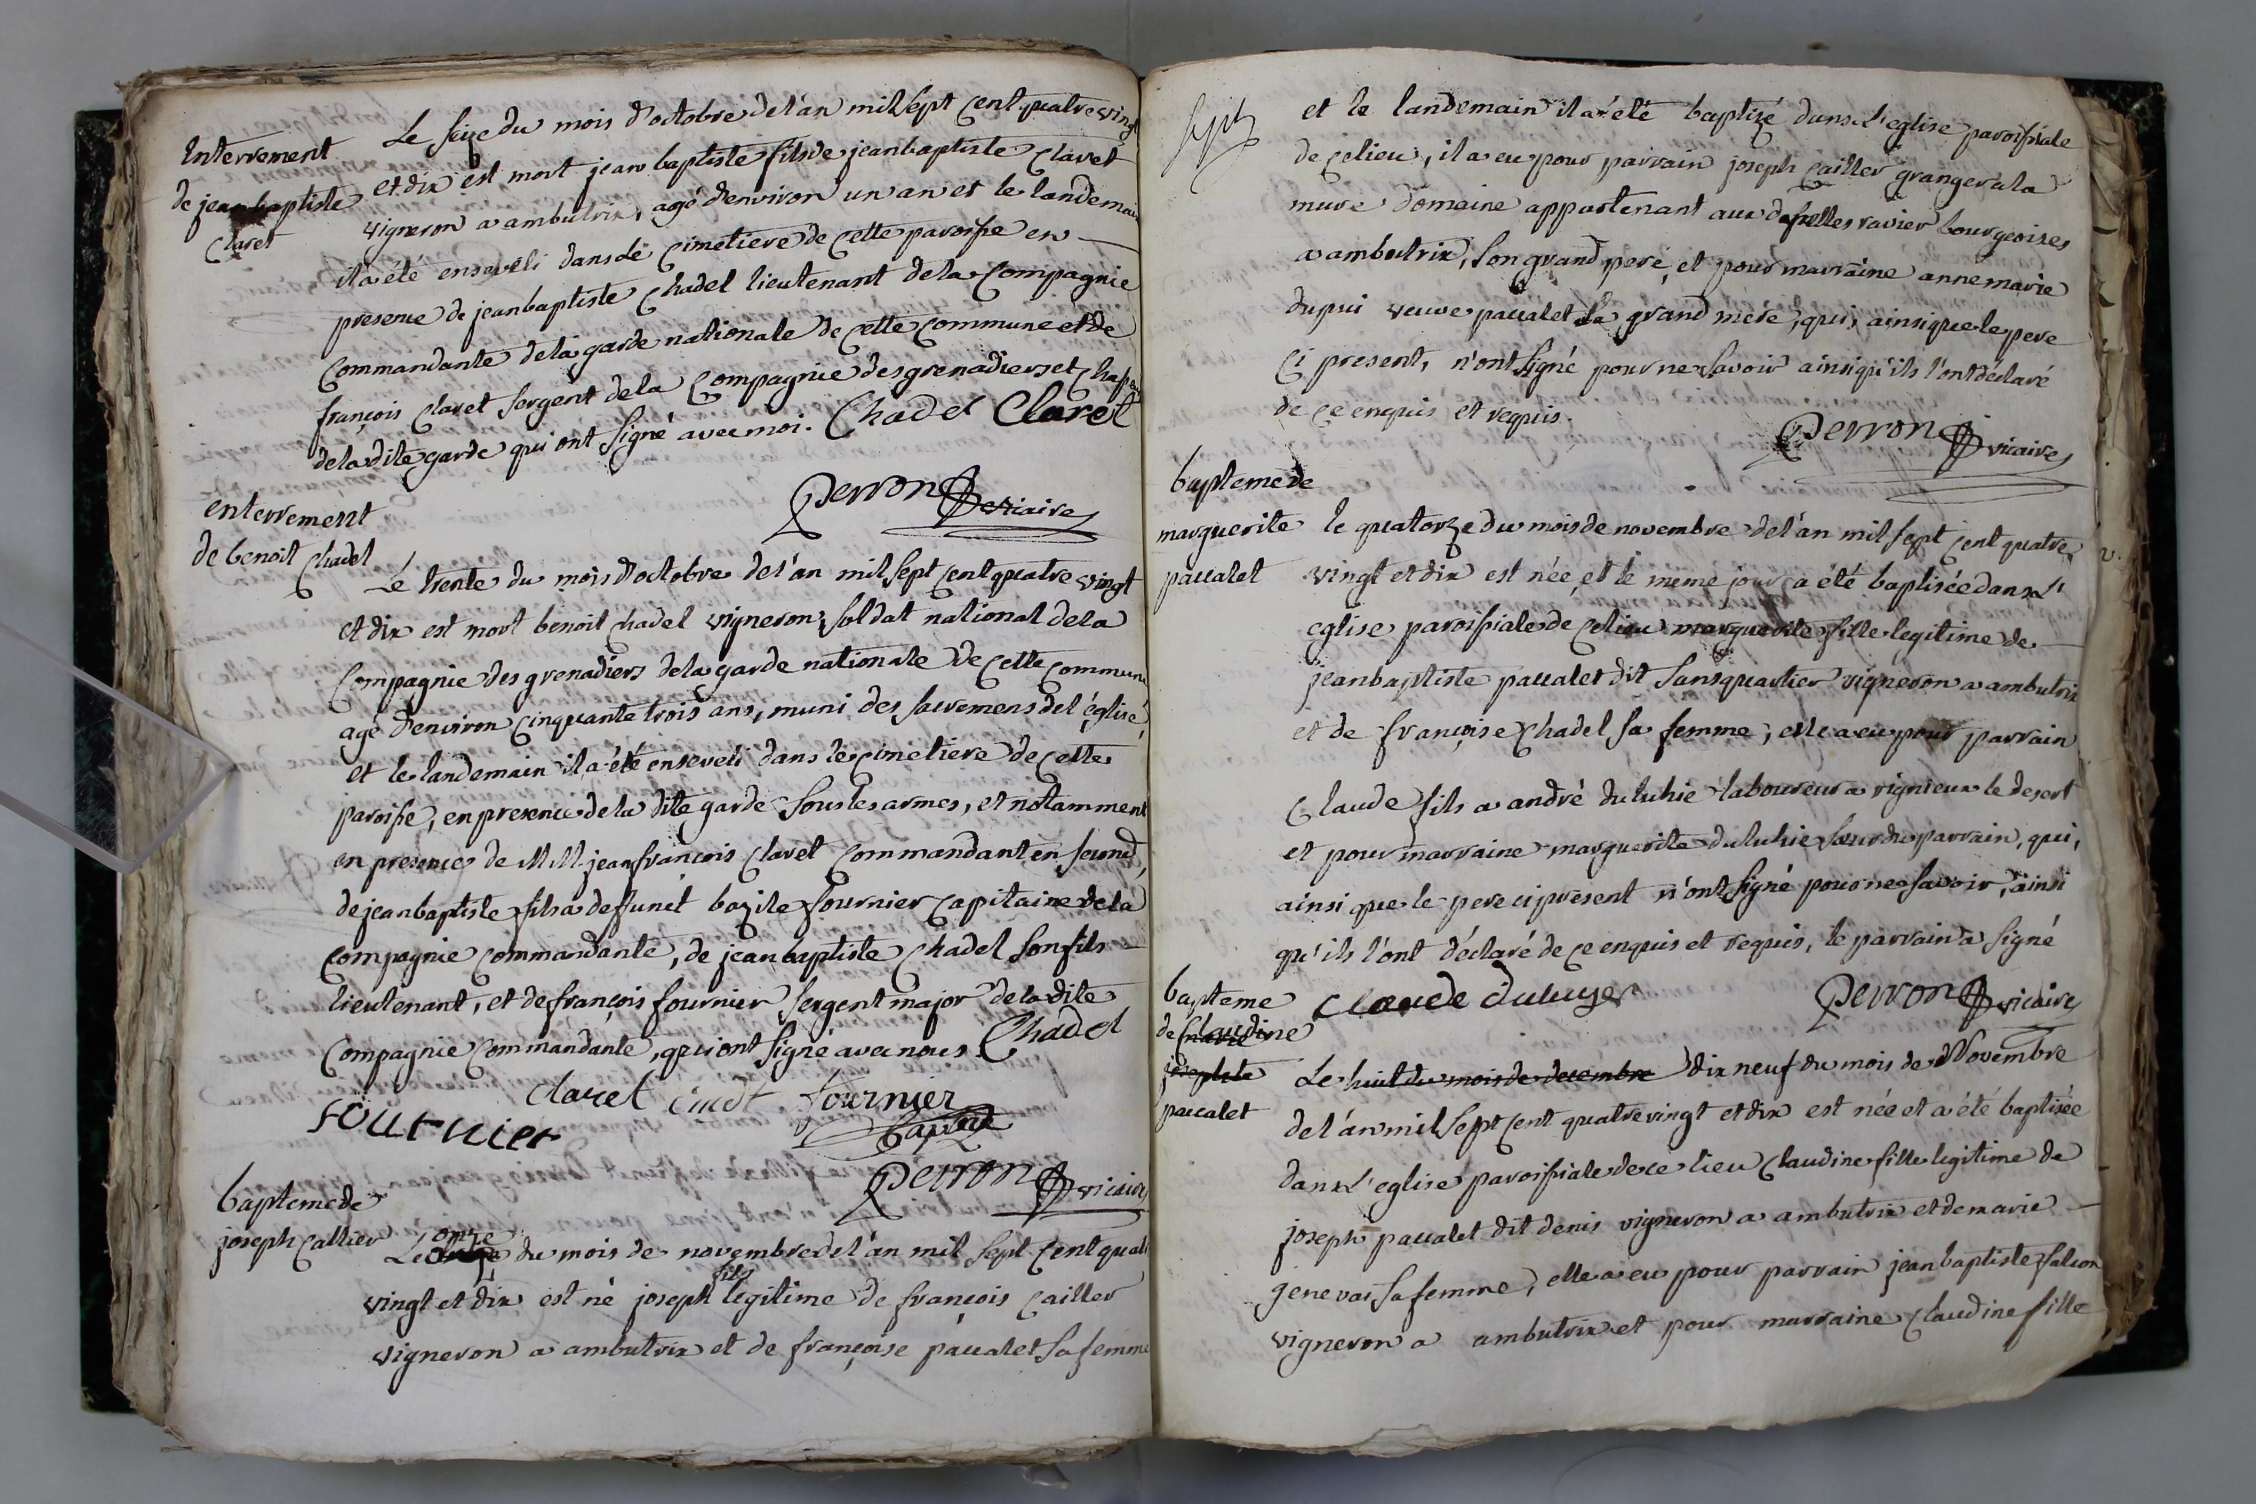 Enterrement
de jean baptiste
Claret
Le seize du mois d'octobre de l'an mil sept cent quatre vingt
et dix est mort jean baptiste fils de jean baptiste Claret
vigneron a ambutrix, agé d'environ un an et le landemain
il a été enseveli dans le cimetiere de cette paroisse en
presence de jean baptiste Chadel lieutenant de la Compagnie
Commandante de la garde nationale de cette commune et de
françois Claret sergent de la Compagnie des grenadiers et
de la dite garde qui ont signé avec moi. Chadel Claret
Perron vicaire
enterrement
de benoit Chadel
Le trente du mois d'octobre de l'an mil sept cent quatre vingt
et dix est mort benoit chadel vigneron, soldat national de la
Compagnie des grenadiers de la garde nationale de cette commune
agé d'environ cinquante trois ans, muni des sacremens de l'église,
et le landemain il a été enseveli dans le cimetiere de cette
paroisse, en presence de la dite garde sous les armes, et notamment
en presence de MM. jean françois Claret Commandant en second,
de jean baptiste fils a defunct bazile fournier Capitaine de la
Compagnie Commandante, de jean baptiste Chadel son fils
lieutenant, et de françois fournier sergent major de la dite
Compagnie Commandante, qui ont signé avec nous. Chadel
Claret fournier
fournier
Perron vicaire
bapteme de
joseph Callier
Le onze du mois de novembre de l'an mil sept cent quatre
vingt et dix est né joseph fils legitime de françois Cailler
vigneron a ambutrix et de françoise paccalet sa femme
sept
et le landemain il a été baptizé dans l'eglise paroissiale
de ce lieu, il a eu pour parrain joseph Cailler granger a la
mure domaine appartenant aux dselles ravier bourgeoises
a ambutrix, son grand pere, et pour marraine anne marie
dupui veuve paccalet sa grand mere, qui, ainsi que le pere
ci present, n'ont signé pour ne savoir ainsi qu'ils l'ont déclaré
de ce enquis et requis.
Perron vicaire
bapteme de
marguerite
paccalet
le quatorze du mois de novembre de l'an mil sept cent quatre
vingt et dix est née, et le meme jour a été baptisée dans l'
eglise paroissiale de ce lieu marguerite fille legitime de
jean baptiste paccalet dit sans quartier vigneron a ambutrix
et de françoise Chadel sa femme, elle a eu pour parrain
Claude fils a andré duluhie laboureur a vignieux le desert
et pour marraine marguerite duluhie soeur du parrain, qui,
ainsi que le pere ci present n'ont signé pour ne savoir, ainsi
qu'ils l'ont déclaré de ce enquis et requis, le parrain a signé
Claude duluyer Perron vicaire
bapteme
de Claudine
josephte
paccalet
Le huit du mois de decembre dix neuf du mois de Novembre
de l'an mil sept cent quatre vingt et dix est née et a été baptisée
dans l'eglise paroissiale de ce lieu Claudine fille legitime de
joseph paccalet dit denis vigneron a ambutrix et de marie
genevai sa femme, elle a eu pour parrain jean baptiste falcon
vigneron a ambutrix et pour marraine Claudine fille